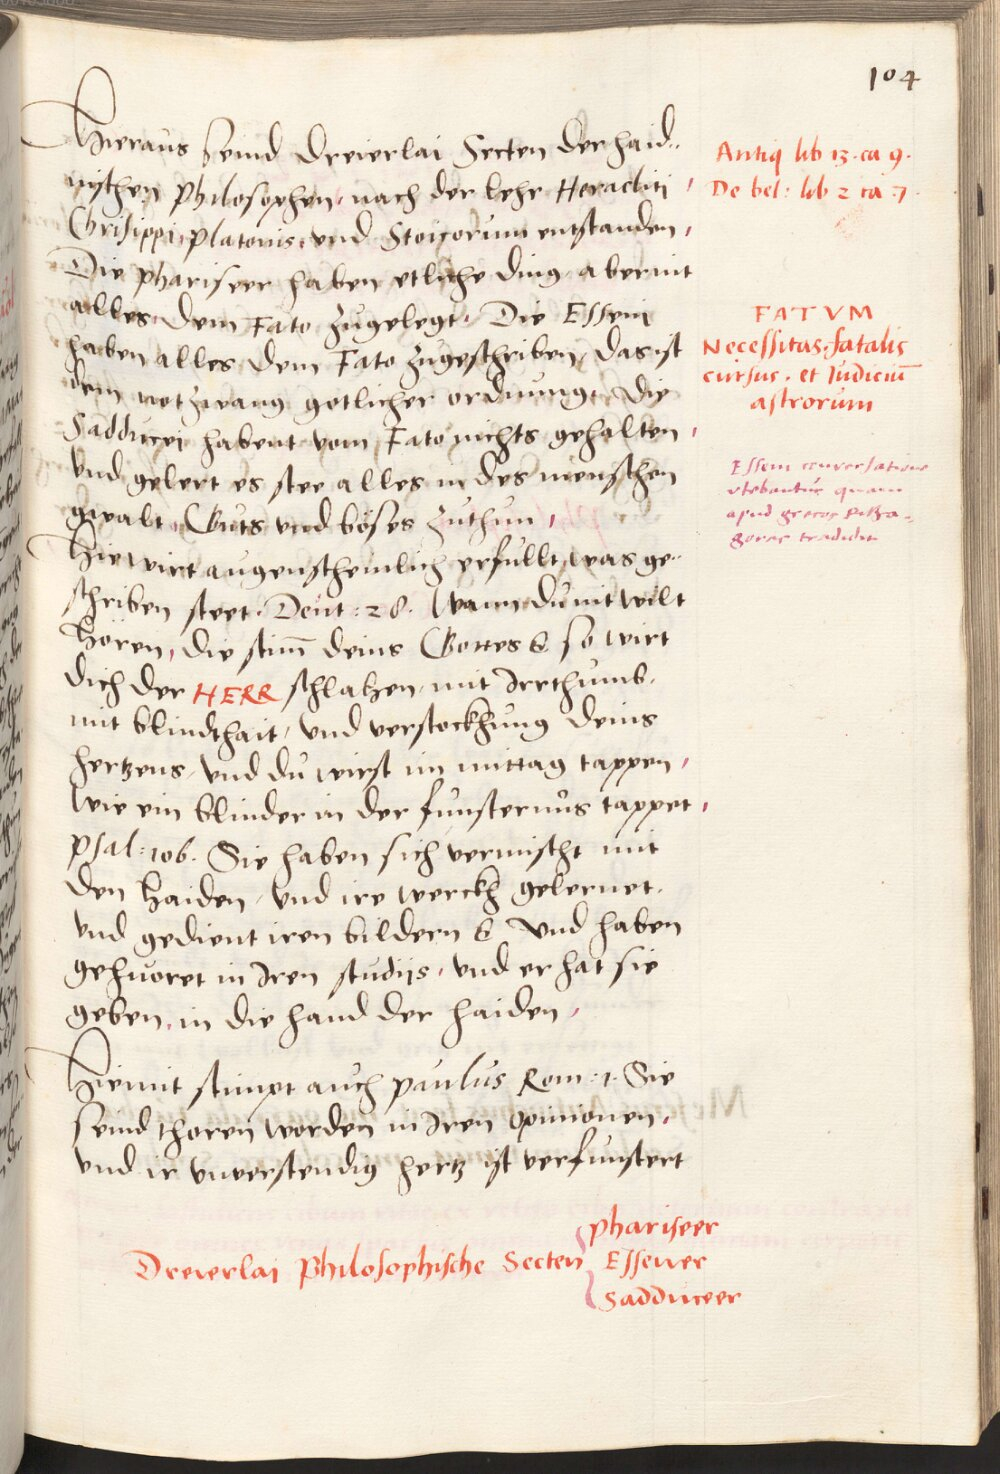 104
Hieraus seind dreierlai Secten der haid-
nischen philosophen, nach der lehr Heracliti,
Chrisippi, Platonis, und Stoicorum entstanden,
Die phariseer haben etliche ding aber nit
alles, dem Fato zugelegt. Die Esseni
haben alles dem Fato zugeschriben, das ist
dem notzwang gotlicher ordnung. Die
Sadducei habent vom Fato nichts gehalten,
Und gelert es stee alles in des menschen
gwalt, Guts und böses zuthun,
Hie wirt augenscheinlich erfullt, was ge-
schriben steet. Deut: 28. Wann du nit wilt
hören, die stim̄ deins Gottes &, so wirt
dich der HERR schlahen, mit Irrthumb,
mit blindthait, und verstockhung deins
hertzens, Und du wirst im mittag tappen,
Wie ein blinder in der funsternus tappet,
Psal: 106. Sie haben sich vermischt mit
den Haiden, und ire werckh gelernet,
Und gedient iren bildern &. Und haben
gehuoret in Iren studijs, und er hat sie
geben, in die hand der haiden,
Hiemit stimpt auch Paulus Rom: 1. Sie
seind thoren worden in Iren Opinionen,
Und ir unverstendig hertz ist verfunstert
Antiq lib 13. ca 9.
De bel: lib 2 ca 7.
FATVM
Necessitas, fatalis
cursus, et Iudiciū
astrorum
Esseni conversatione
utebantur quam
apud grecos Pitha-
goras tradidit
Dreierlai Philosophische Secten
Phariseer
Essener
Sadduceer